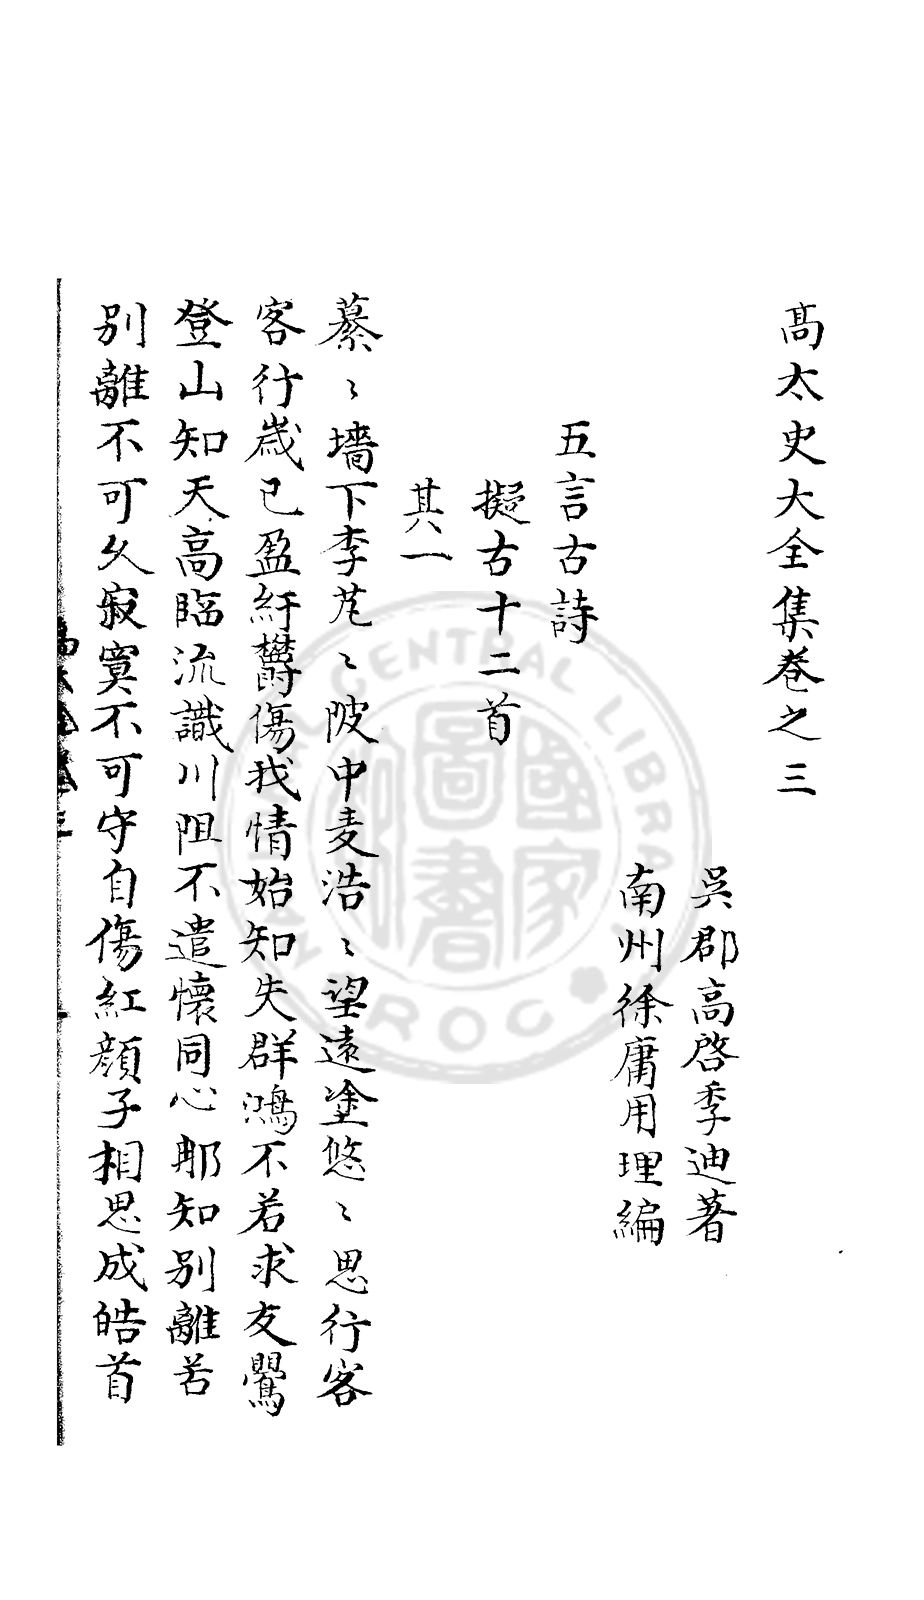 髙太史大全集巻之三
吳郡高啓季迪著
南州徐庸用理編
五言古詩
擬古十二首
其一
綦〻墻下李芃〻陂中麦浩〻望遠塗悠〻思行客
客行歳已盈紆欝傷我情始知失群鴻不若求友鸎
登山知天高臨流識川阻不遣懷同心那知别離苦
别離不可久寂寞不可守自傷紅顔子相思成皓首
NATIONAL CENTRAL LIBRARY R.O.C.
國家圖書館